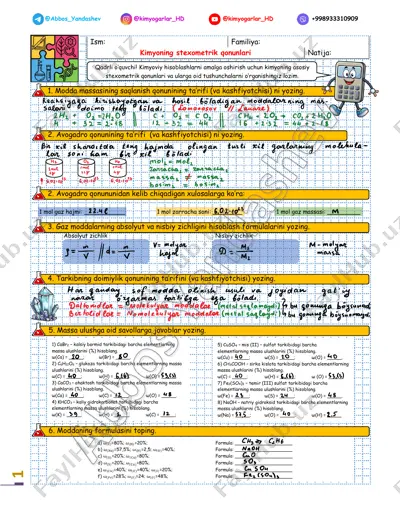 @Abbes_Yandashev @kimyogarlar_HD @kimyogarlar_HD +998933310909
Ism: Familiya:
Kimyoning stexometrik qonunlari Natija:
Qadrli o'quvchi! Kimyoviy hisoblashlarni amalga oshirish uchun kimyoning asosiy
stexometrik qonunlari va ularga oid tushunchalarni o'rganishingiz lozim.
1. Modda massasining saqlanish qonunining ta'rifi (va kashfiyotchisi) ni yozing.
Reaksiyaga kirishayotgan va hosil bo'ladigan moddalarning mas-
salari doimo teng bo'ladi. (Lomonosov // Lavuazye)
2H₂ + O₂ = 2H₂O C + O₂ = CO₂ CH₄ + 2O₂ = CO₂ + 2H₂O
4 + 32 = 36 12 + 32 = 44 16 + 64 = 44 + 36
2. Avogadro qonunining ta'rifi (va kashfiyotchisi) ni yozing.
Bir xil sharoitda teng hajmda olingan turli xil gazlarning molekula-
lar soni ham bir xil bo'ladi.
mol₁ = mol₂
zarracha₁ = zarracha₂
massa₁ ≠ massa₂
bosim₁ = bosim₂
2. Avogadro qonunidan kelib chiqadigan xulosalarga ko'ra:
1 mol gaz hajmi: 22.4 l 1 mol zarracha soni: 6,02·10²³ 1 mol gaz massasi: M
3. Gaz moddalarning absolyut va nisbiy zichligini hisoblash formulalarini yozing.
Absolyut zichlik Nisbiy zichlik
4. Tarkibning doimiylik qonunining ta'rifini (va kashfiyotchisi) yozing.
Har qanday sof modda olinish usuli va joyidan qat'iy
nazar o'zgarmas tarkibga ega bo'ladi.
Daltonidlar = Molekulyar moddalar
Bertolidlar = Nomolekulyar moddalar
5. Massa ulushga oid savollarga javoblar yozing.
1) CaBr₂ - kalsiy bormid tarkibidagi barcha elementlarning
massa ulushlarini (%) hisoblang.
w(Ca) = 20 w(Br) = 80
2) C₆H₁₂O₆ - glukoza tarkibidagi barcha elementlarning
massa ulushlarini (%) hisoblang.
w(C) = 40 w(H) = 6,(6) w(O) = 53,(3)
3) CaCO₃ - ohaktosh tarkibidagi barcha elementlarning
massa ulushlarini (%) hisoblang.
w(Ca) = 40 w(C) = 12 w(O) = 48
4) KHCO₃ - kaliy gidrokarbonat tarkibidagi barcha
elementlarning massa ulushlarini (%) hisoblang.
w(K) = 39 w(H) = 1 w(C) = 12
5) CuSO₄ - mis (II) sulfat tarkibidagi barcha
elementlarning massa ulushlarini (%) hisoblang.
w(Cu) = 40 w(S) = 20 w(O) = 40
6) CH₃COOH - sirka kislota tarkibidagi barcha
elementlarning massa ulushlarini (%) hisoblang.
w(C) = 40 w(H) = 6,(6) w(O) = 53,(3)
7) Fe₂(SO₄)₃ - temir (III) sulfat tarkibidagi barcha
elementlarning massa ulushlarini (%) hisoblang.
w(Fe) = 28 w(S) = 24 w(O) = 48
8) NaOH - natriy gidroksid tarkibidagi barcha
elementlarning massa ulushlarini (%) hisoblang.
w(Na) = 57,5 w(O) = 40 w(H) = 2,5
6. Moddaning formulasini toping.
Formula:
b) Formula: NaOH
c) Formula:
d) Formula: SO₃
e) Formula: CuSO₄
f) Formula: Fe₂(SO₄)₃
1